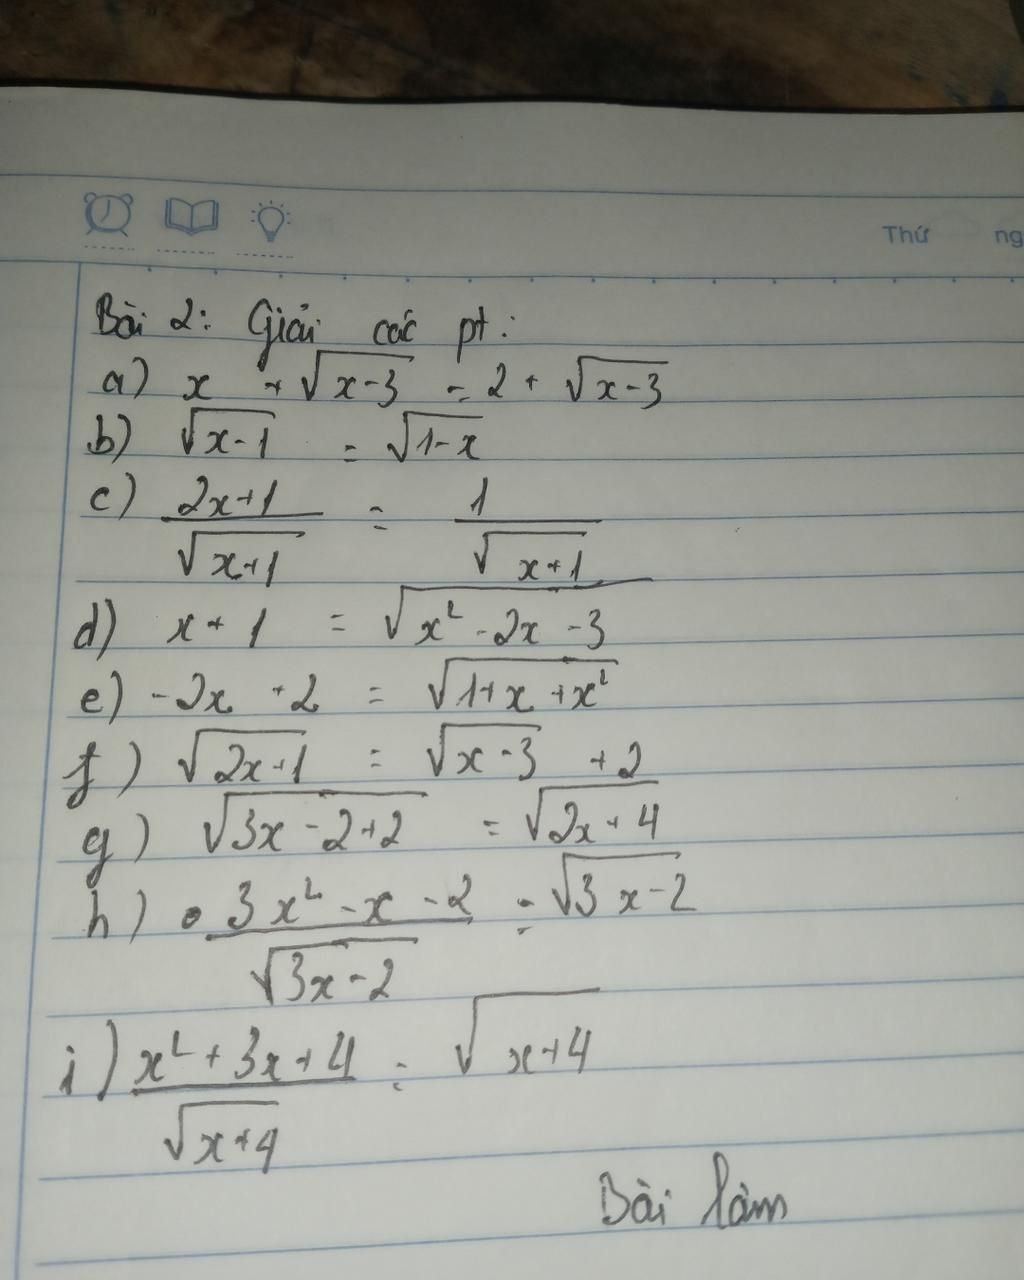 Thứ ng
Bài 2: Giải các pt:
a) x + √(x-3) = 2 + √(x-3)
b) √(x-1) = √(1-x)
c) (2x+1)/√(x+1) = 1/√(x+1)
d) x + 1 = √(x² - 2x - 3)
e) -2x + 2 = √(1+x+x²)
f) √(2x+1) = √(x-3) + 2
g) √(3x-2+2) = √(2x+4)
h) (3x² - x - 2)/√(3x-2) = √(3x-2)
i) (x² + 3x + 4)/√(x+4) = √(x+4)
Bài làm